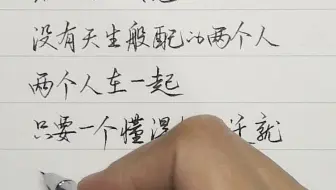 没有天生般配的两个人
两个人在一起
只要一个懂得 就